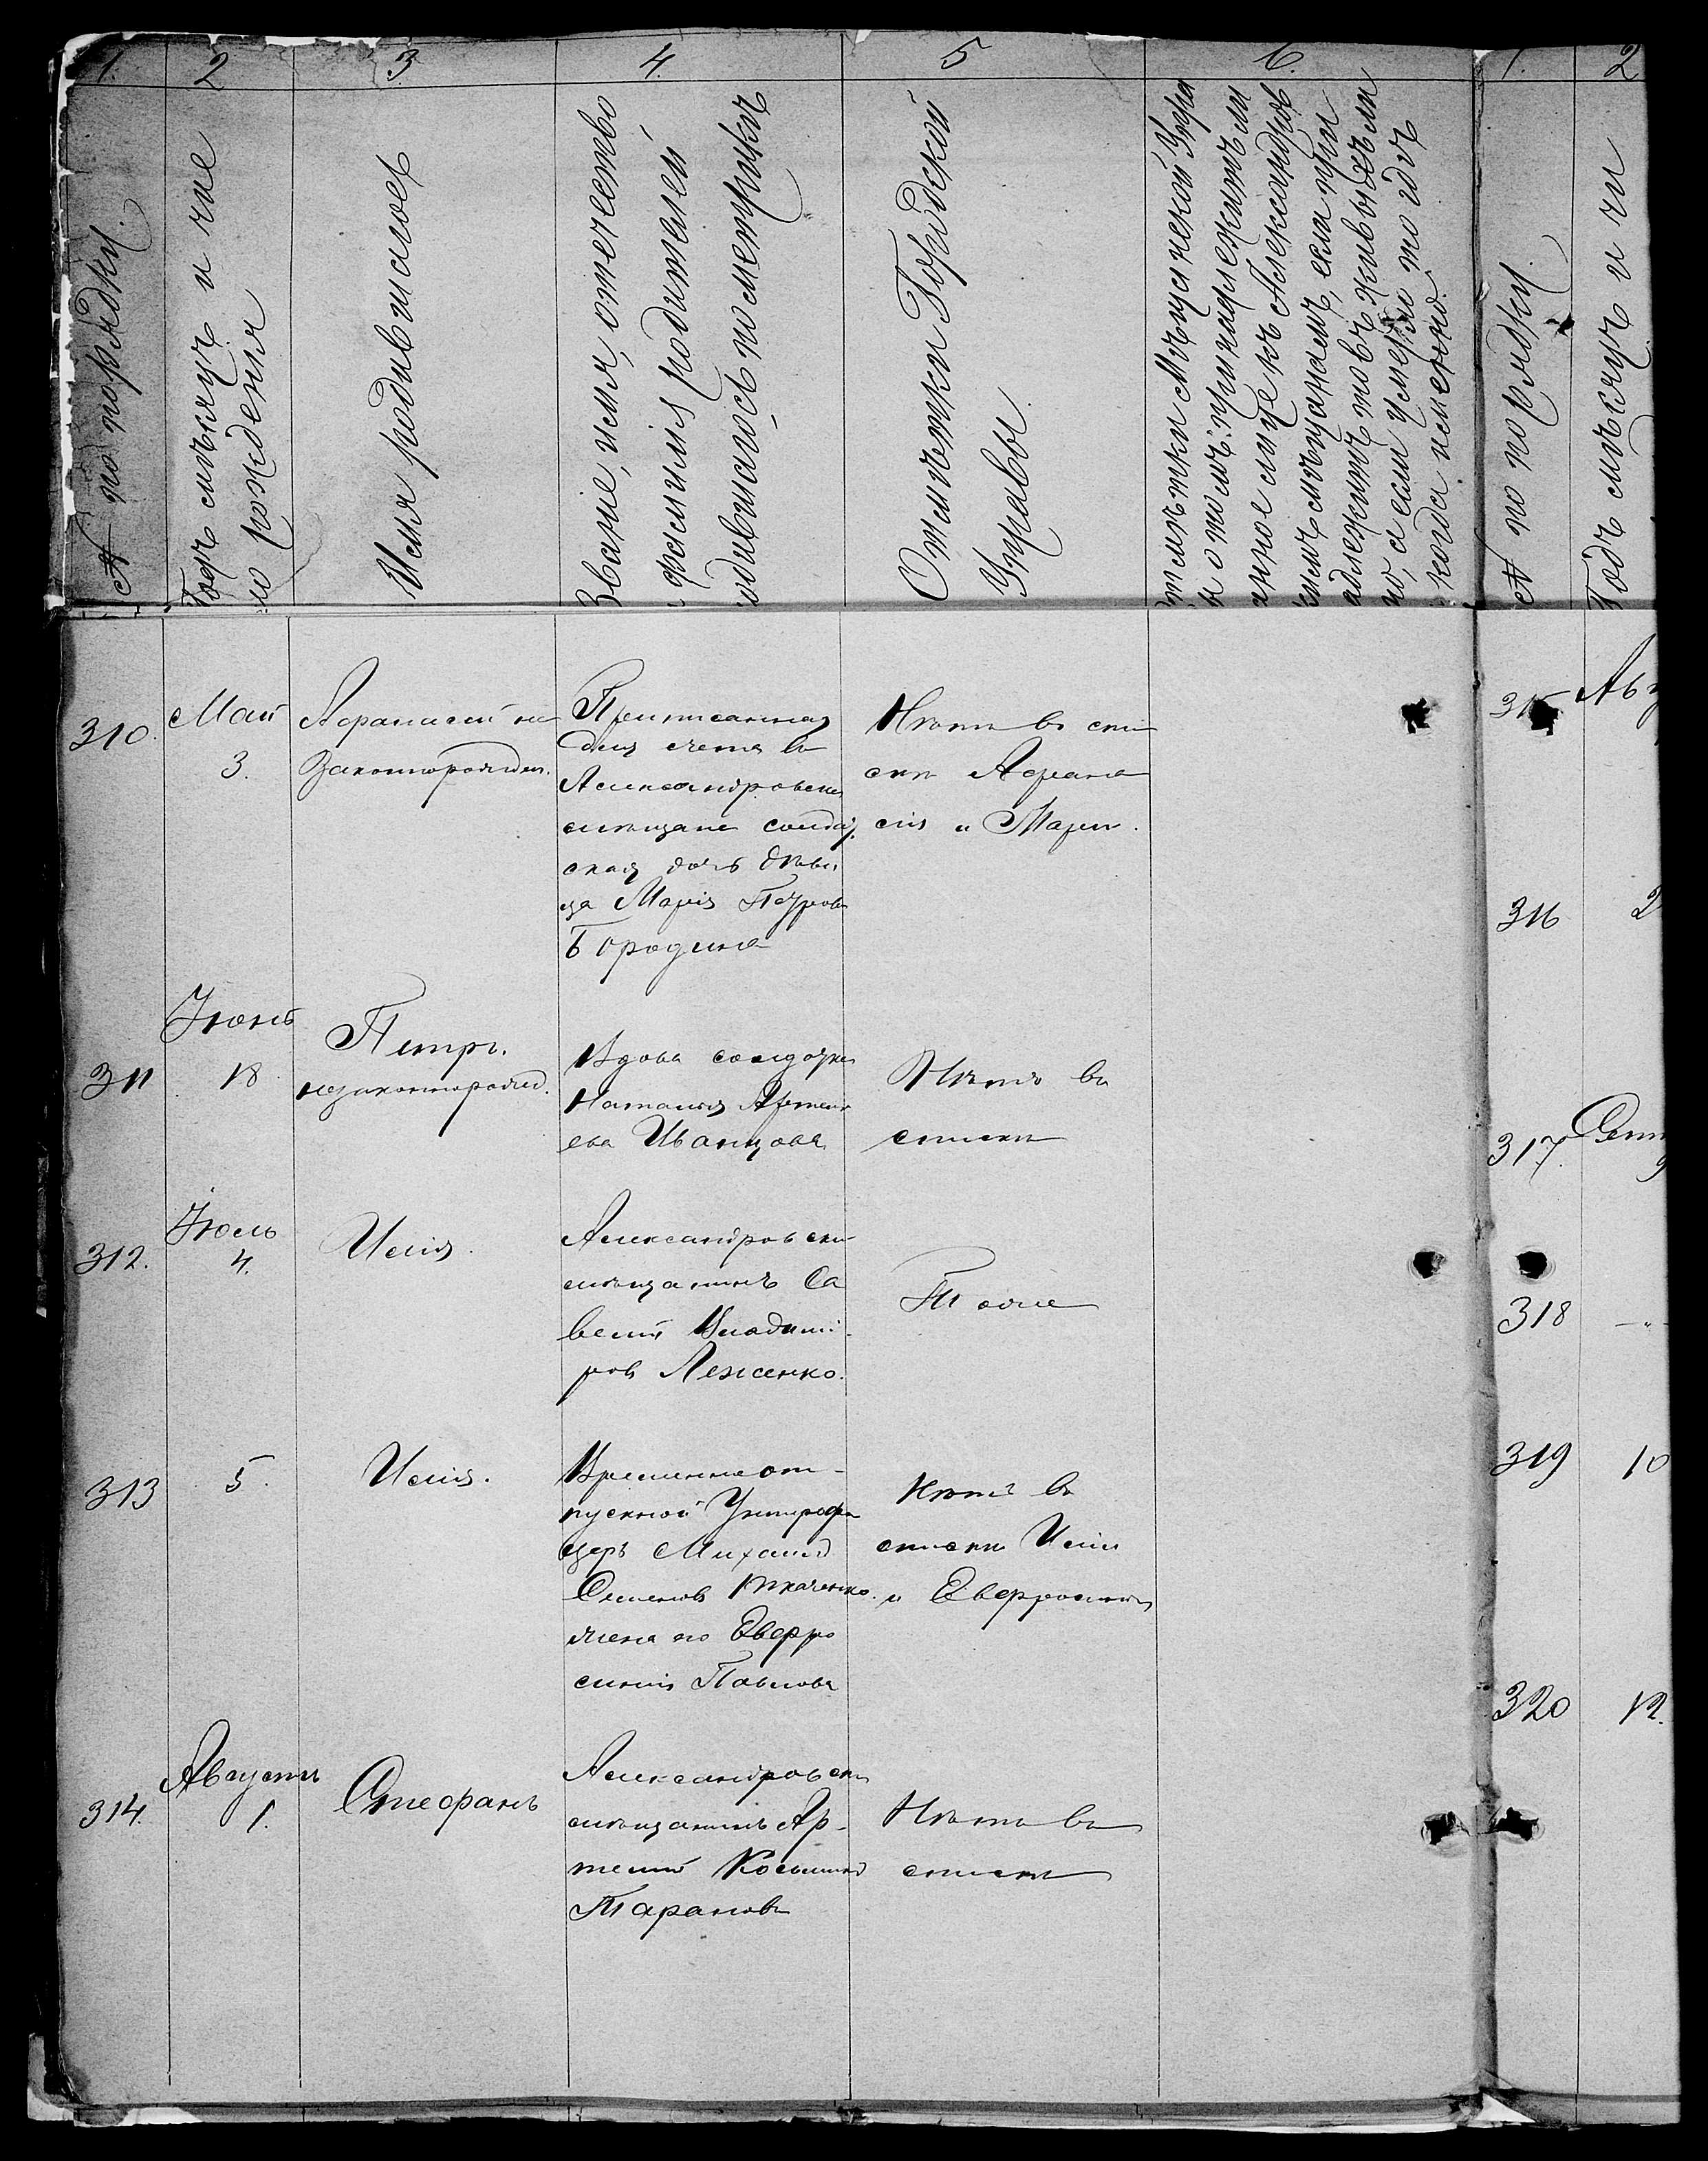 1. 2 3 4. 5 6. 1. 2
№ по порядку.
Годъ мѣсяцъ и чис
ло рожденія
Имя родившагося
Званіе, имя, отчество
фамилія родителей
родившагося по метрикѣ
Отмѣтки Городской
Управы
Отмѣтки Мѣщанской Упра
вы о томъ: принадлежитъ ли
ное лице къ Александров
скимъ мѣщанамъ, если при
надлежитъ то въ живыхъ ли
но, а если умерли то идъ
когда именно.
№ по порядку.
Годъ мѣсяцъ и чи
310.
Май
3.
Афанасий не
Законнорожден.
Приписанная
для счета въ
Александровски
мѣщане солдат
ская дочь дѣви
ца Марія Петров
Бородина
Нѣтъ въ спи
скѣ Афана
сія и Маріи.
311
Іюнь
18
Петръ.
незаконнорожд.
Вдова солдатка
Наталия Артемь
ева Иванцова
Нѣтъ въ
списки
312.
Іюль
4.
Илія.
Александровски
мѣщанинъ Са
велій Владимі
ровъ Леженко.
Тоже
313
5.
Илія.
Временноот-
пускной Унтерофи
церъ Михаилъ
Семеновъ Ткаченко
жена его Евфро
синія Павлова
Нѣтъ въ
списки Иліи
и Евфросиніи
314.
Августъ
1.
Стефанъ
Александровски
мѣщанинъ Ар-
темій Косьминъ
Тарановъ
Нѣтъ въ
списки
315
Авг
316
2
317.
Сент
9
318
-"-
319
10
320
12.